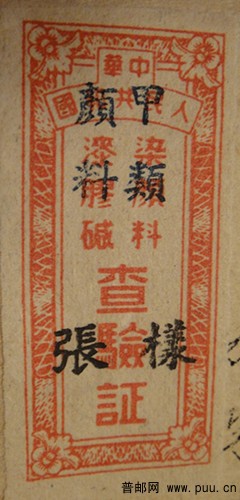 中華
人民共和國
甲類
顏料
染料
漆膠碱
查驗証
樣張
普邮网 www.puu.cn